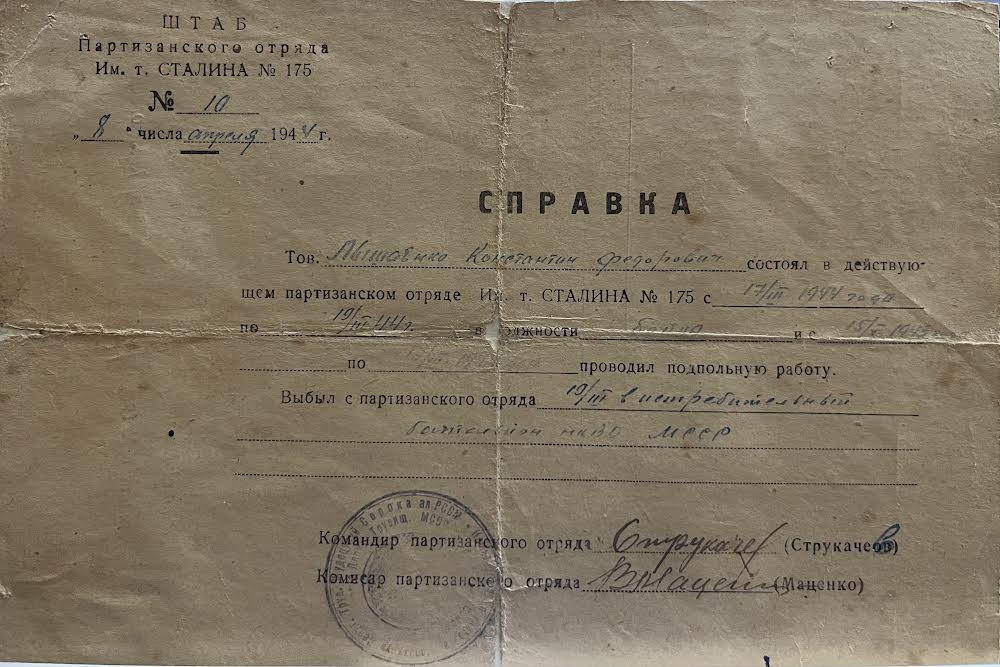 ШТАБ
Партизанского отряда
Им. т. СТАЛИНА № 175
№ 10
„ 8 " числа апреля 1944 г.
СПРАВКА
Тов. Константин Федорович состоял в действую-
щем партизанском отряде Им. т. СТАЛИНА № 175 с 17/III 1944 года
по 19/III 44 г. в должности бойца и с
по проводил подпольную работу.
Выбыл с партизанского отряда 19/III в истребительный
батальион НКВД МССР
Командир партизанского отряда Струкачев (Струкачеов)
Комисар партизанского отряда (Маценко)